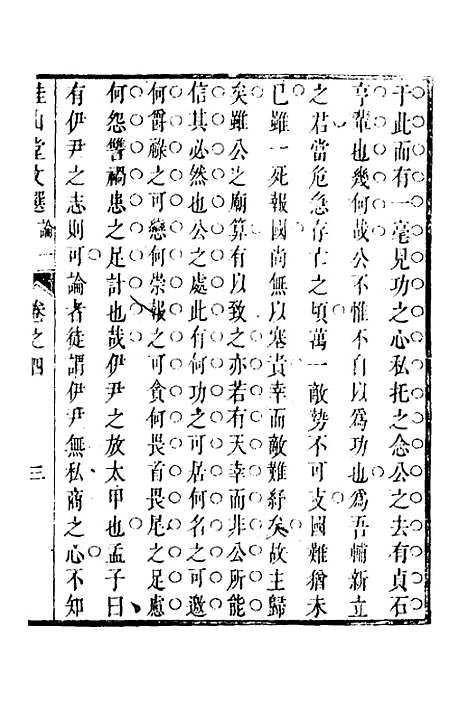 于此而有一毫見功之心私托之念公之去有貞石
亨輩也幾何故公不惟不自以為功也為吾輔新立
之君當危急存亡之頃萬一敵勢不可支國難猶未
已雖一死報國尚無以塞責幸而敵難紓矣故主歸
矣雖公之廟算有以致之亦若有天幸而非公所能
信其必然也公之處此有何功之可居何名之可邀
何爵祿之可戀何崇報之可食何畏首畏尾之足慮
何怨讐禍患之足計也哉伊尹之放太甲也孟子曰
有伊尹之志則可論者徒謂伊尹無私商之心不知
桂山堂文選 論一 卷之四 三